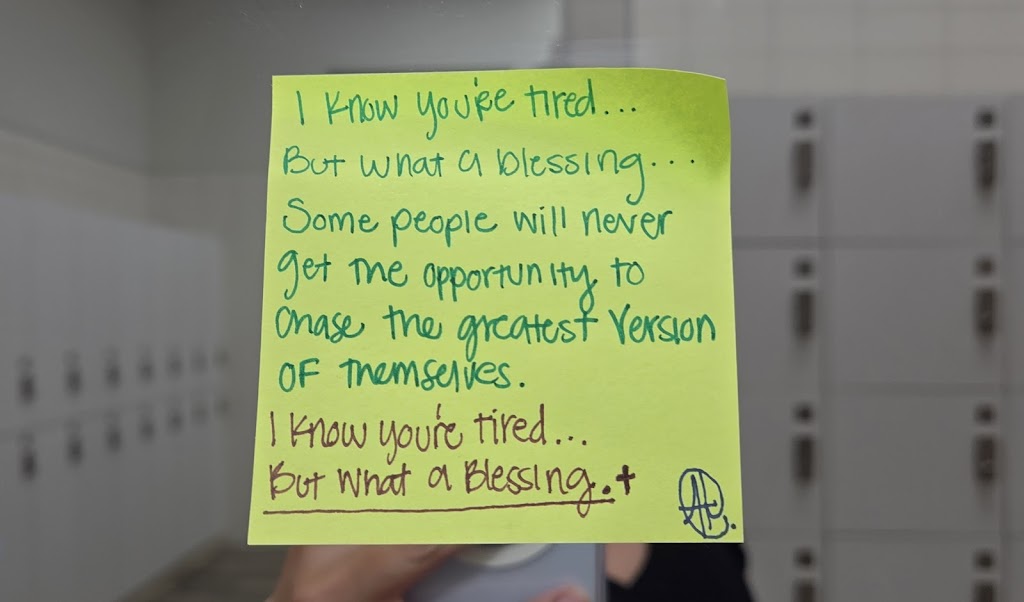 I know you're tired...
But what a blessing...
Some people will never
get the opportunity to
chase the greatest version
of themselves.
I know you're tired...
But what a Blessing.+